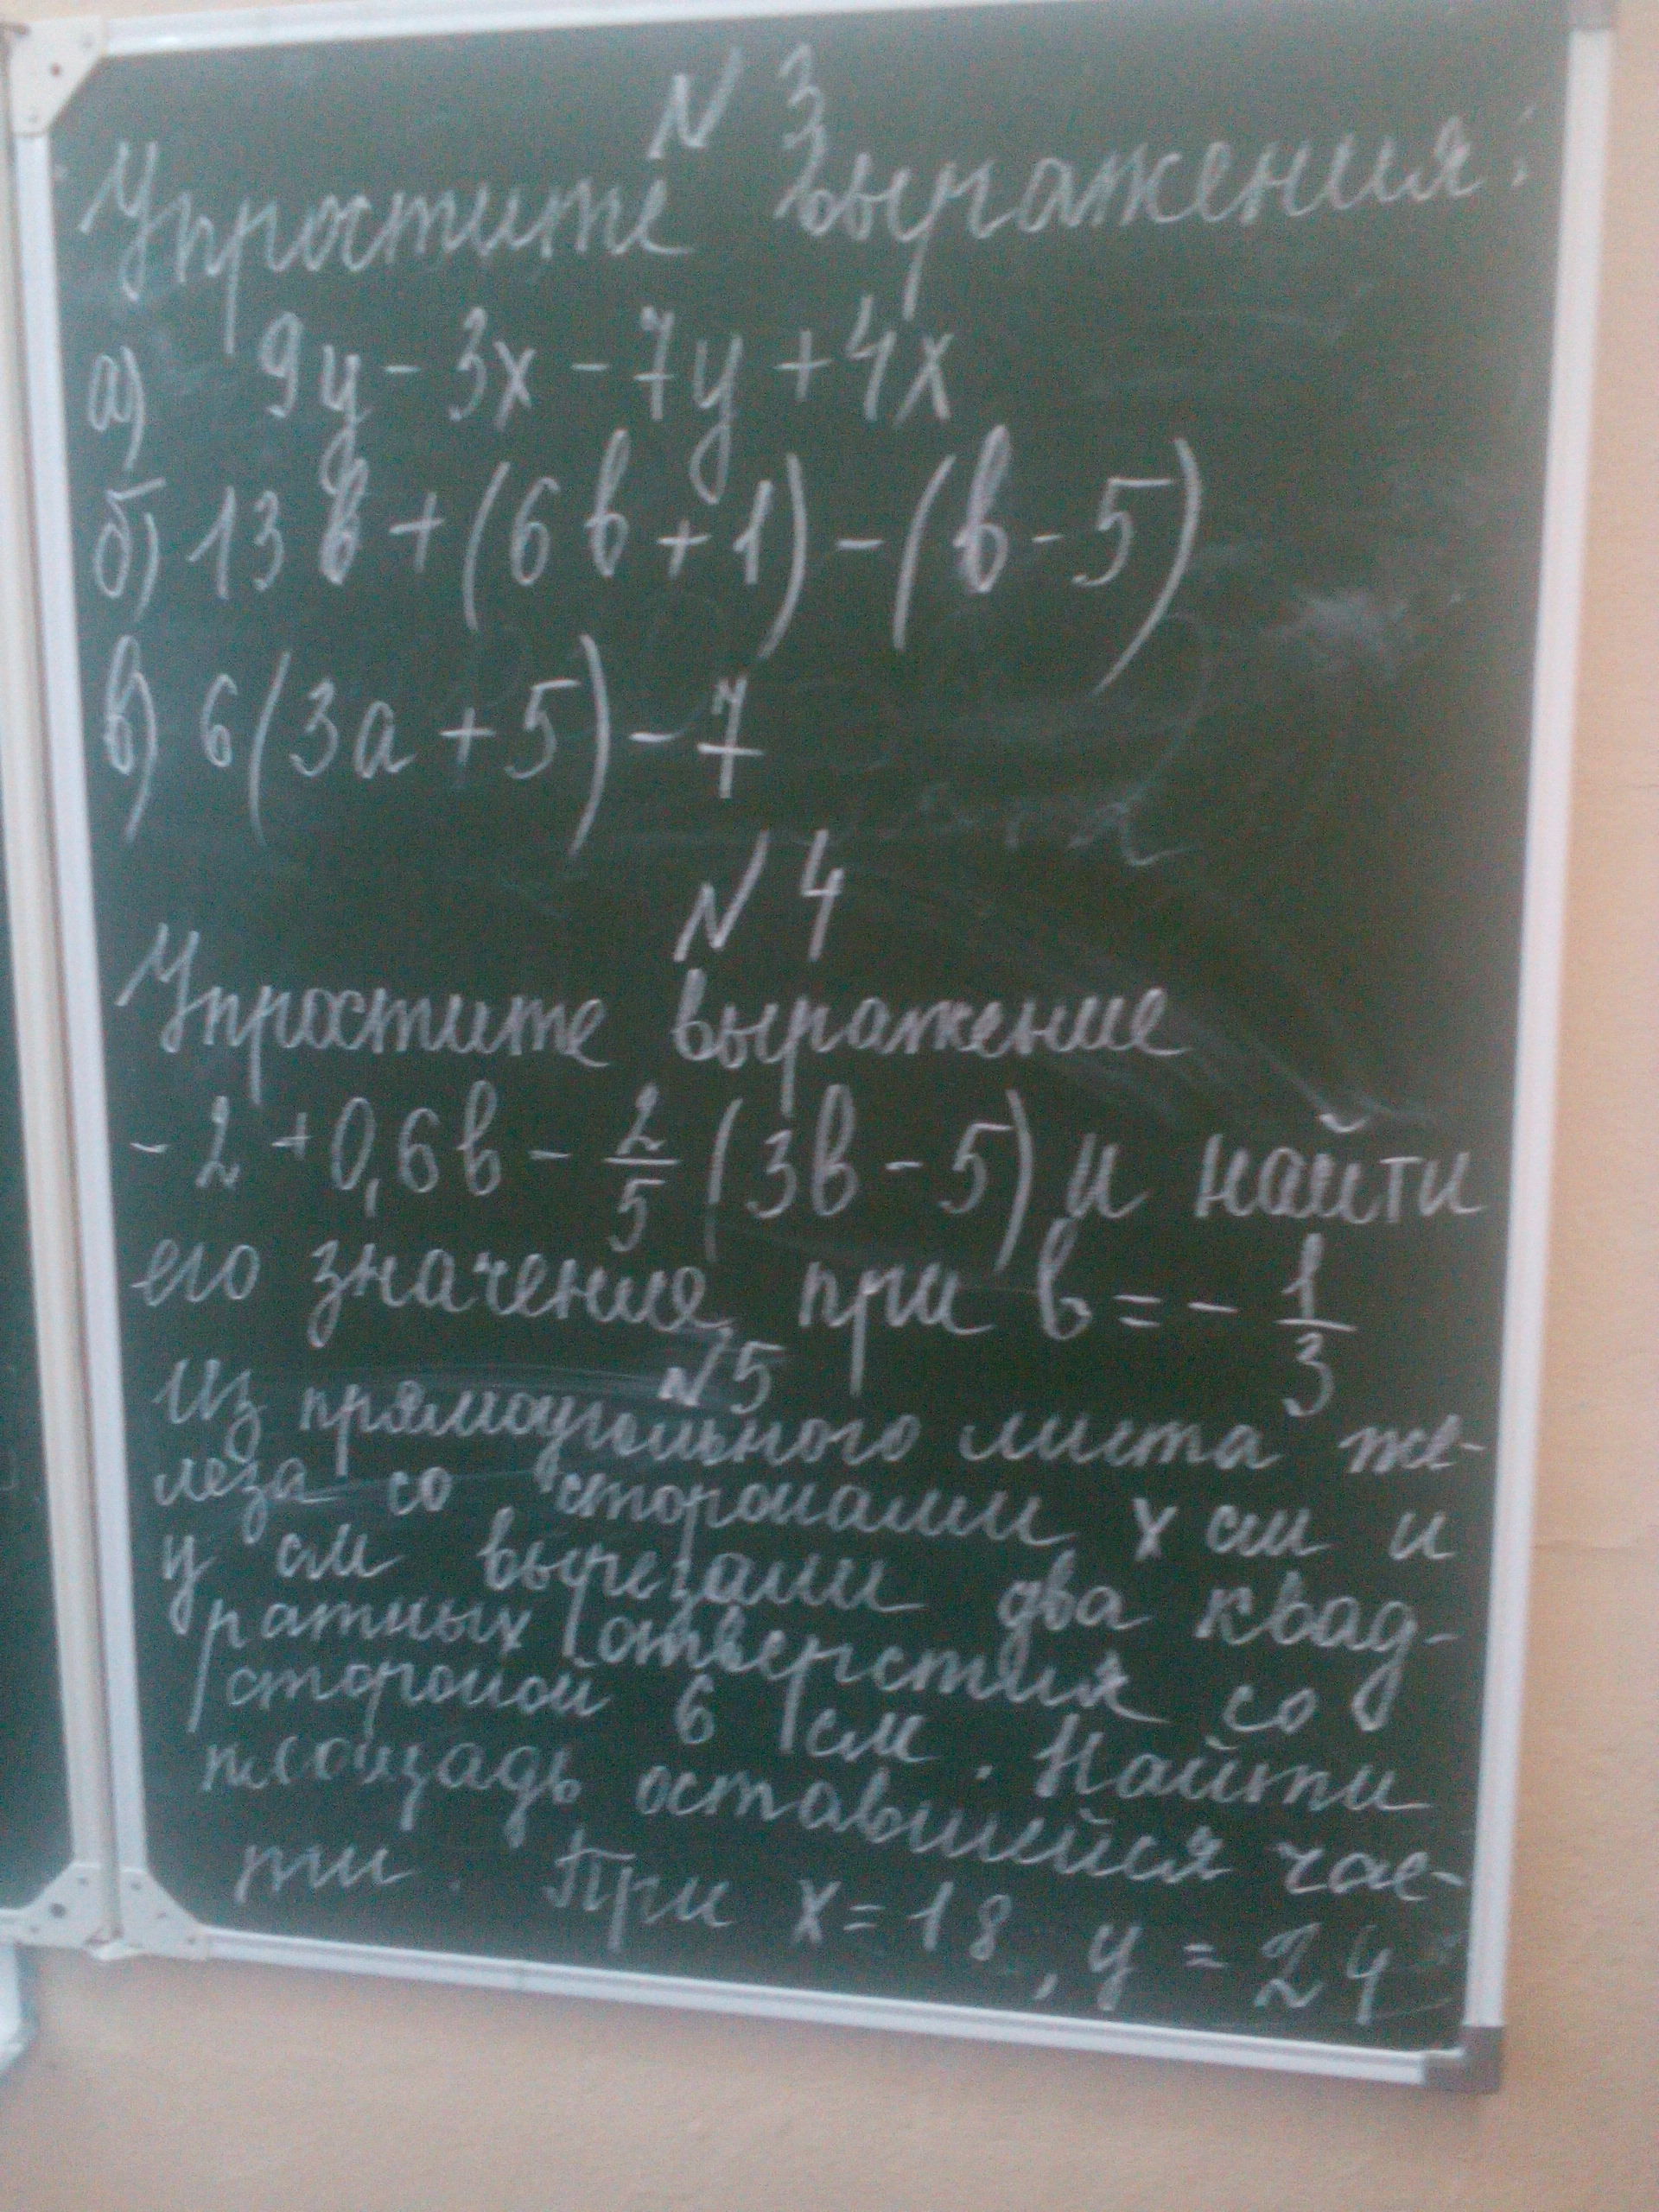 N 3
Упростите выражения:
а) 9y - 3x - 7y + 4x
б) 13b + (6b + 1) - (b - 5)
в) 6(3a + 5) - 7
N 4
Упростите выражение
- 2 + 0,6b - 2/5 (3b - 5) и найти
его значение при b = - 1/3
N5
Из прямоугольного листа же-
леза со сторонами x см и
y см вырезали два квад-
ратных отверстия со
стороной 6 см. Найти
площадь оставшейся час-
ти. При x = 18, y = 24